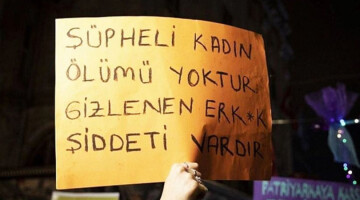 ŞÜPHELİ KADIN
ÖLÜMÜ YOKTUR,
GİZLENEN ERK*K
ŞİDDETİ VARDIR
PATRİYARKAYA KARŞ